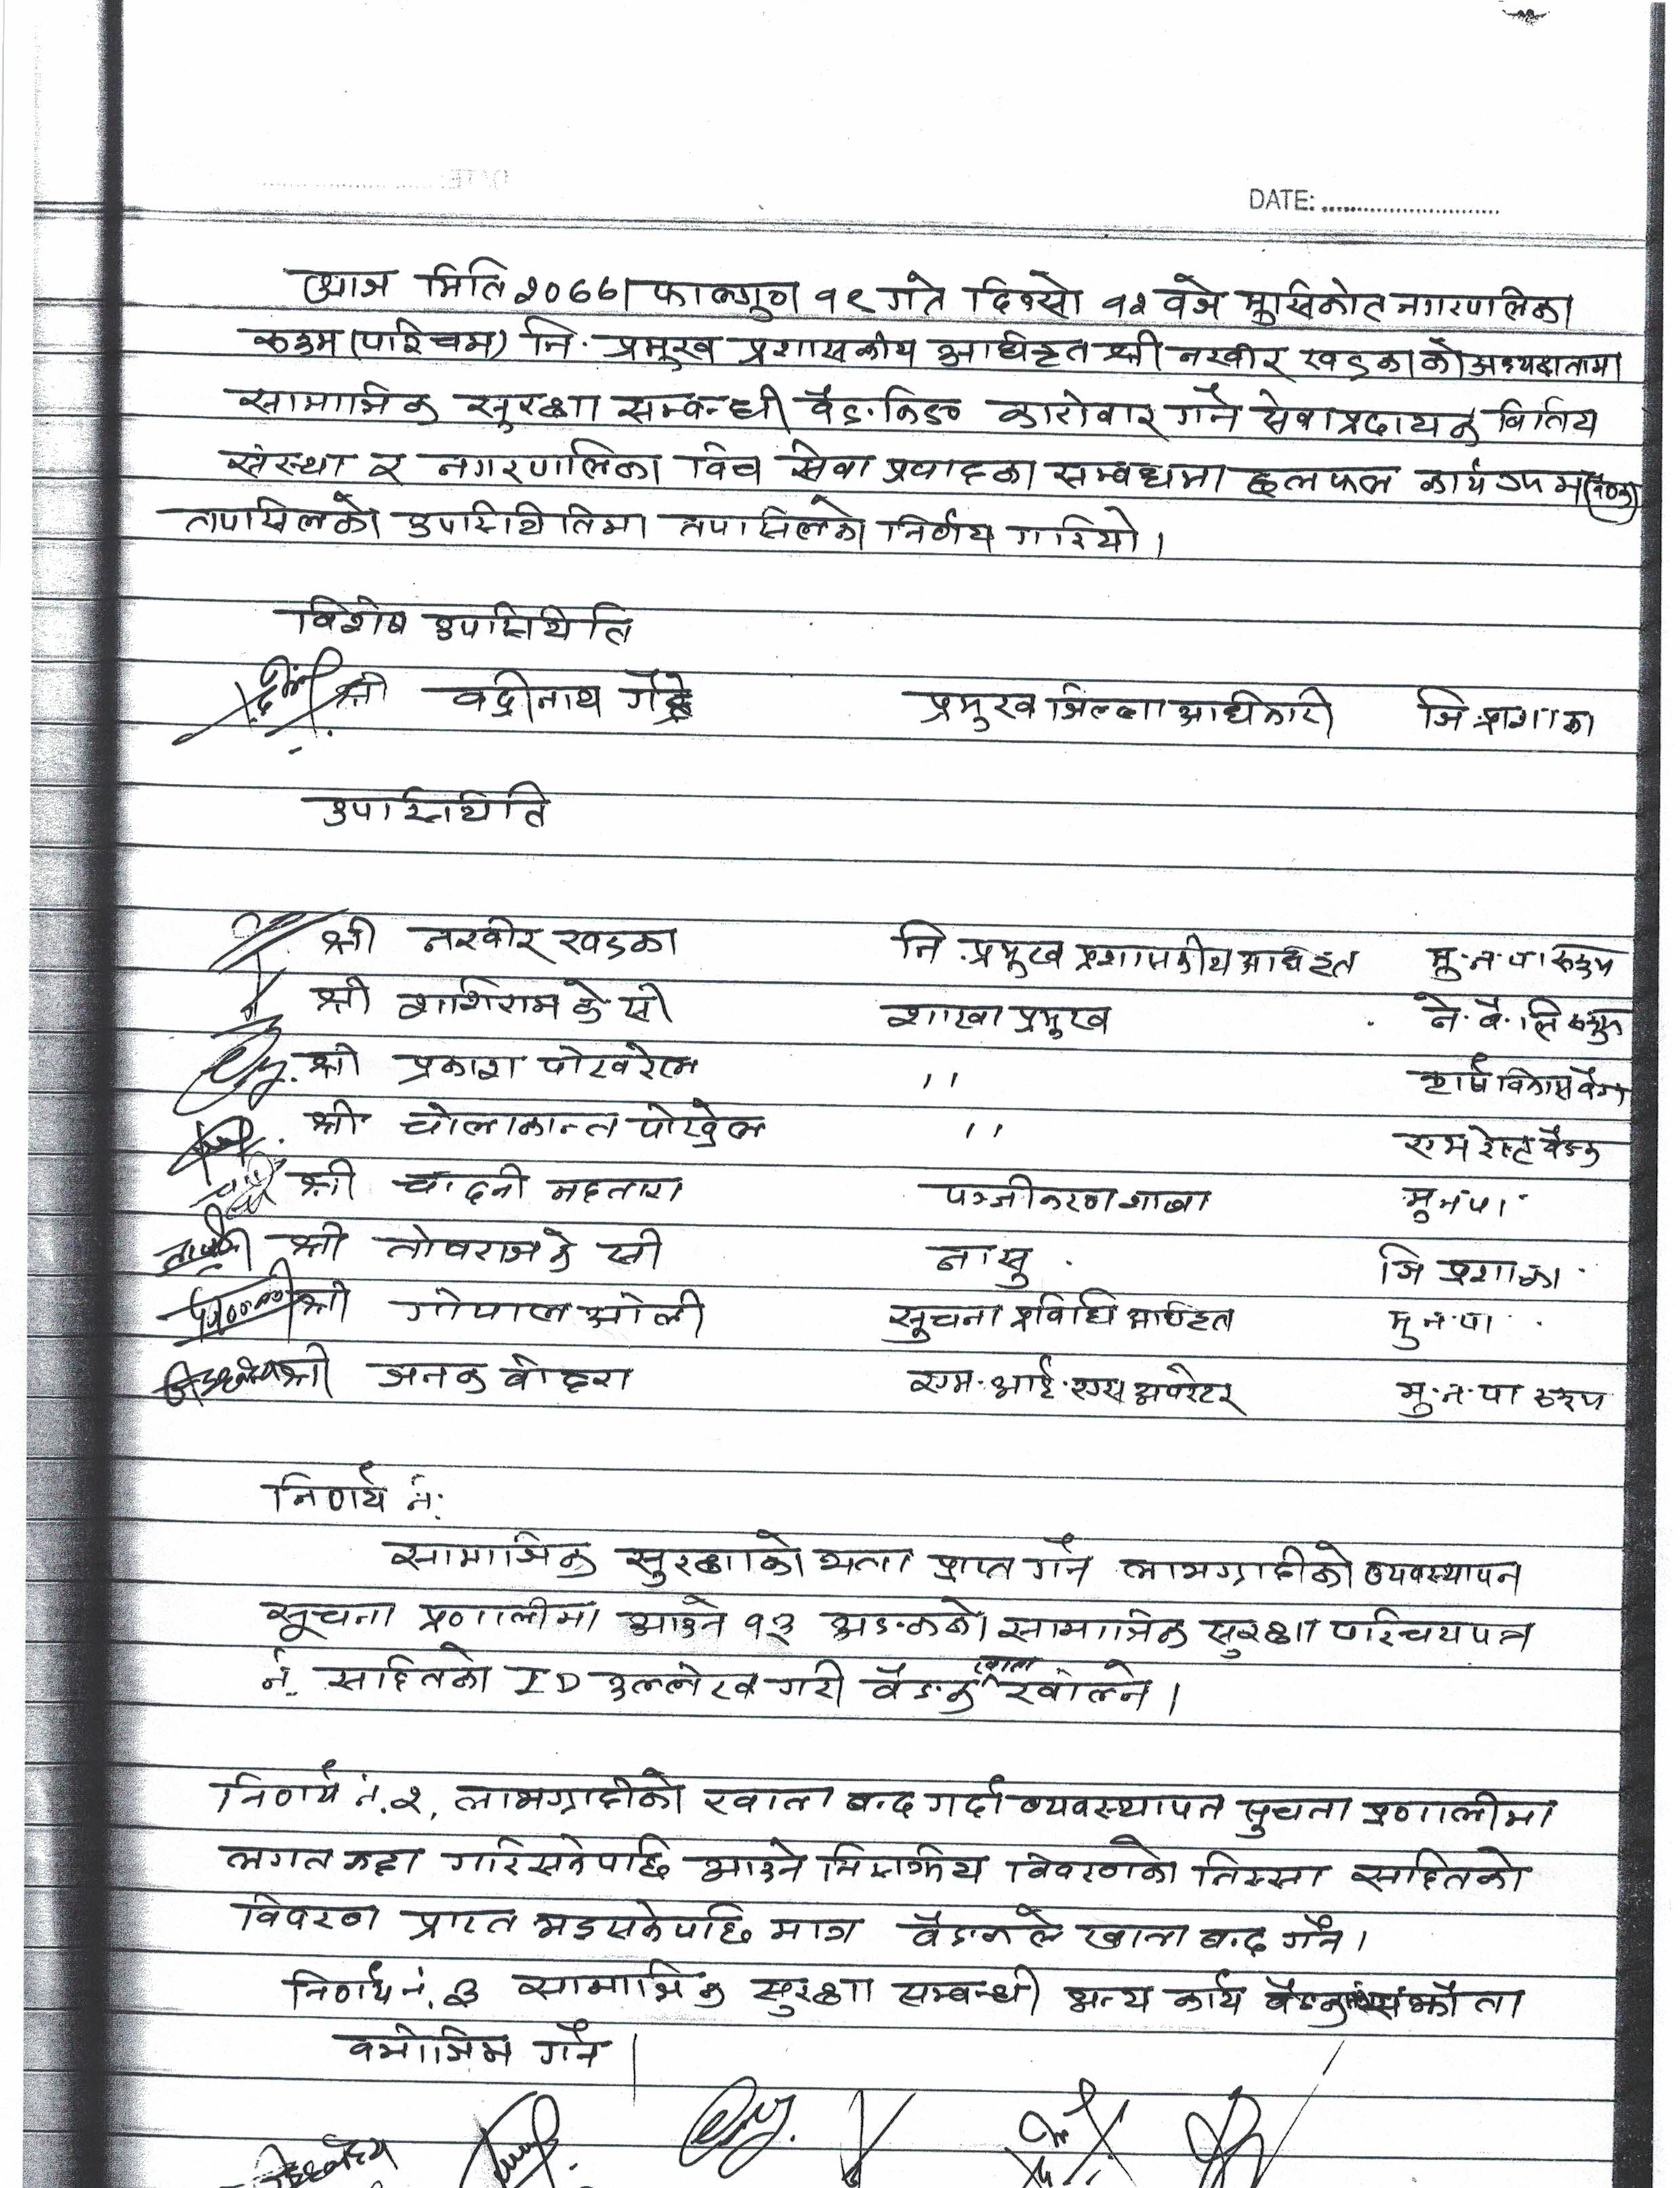 DATE: ............................
आज मिति २०७७। फाल्गुण १९ गते दिउसो १२ वजे मुसिकोट नगरपालिका
रुकुम (पश्चिम) नि. प्रमुख प्रशासकीय अधिकृत श्री नरवीर खड्काको अध्यक्षतामा
सामाजिक सुरक्षा सम्वन्धी वैङ्किङ कारोवार गर्ने सेवा प्रदायक वित्तिय
संस्था र नगरपालिका विच सेवा प्रवाहका सम्वन्धमा छलफल कार्यक्रममा
तपसिलको उपस्थितिमा तपासिलको निर्णय गरियो।
विशेष उपस्थिति
श्री वद्रीनाथ गैह्रे प्रमुख जिल्ला अधिकारी जि.प्रशा.का
उपस्थिति
श्री नरवीर खडका नि.प्रमुख प्रशासकीय अधिकृत मु.न.पा रुकुम
श्री शशिराम के सी शाखा प्रमुख ने.बै.लि रुकुम
श्री प्रकाश पोखरेल '' कृषि विकास बैंक
श्री चोलाकान्त पोख्रेल '' एभरेष्ट बैङक
श्री चादनी महतारा पञ्जीकरण शाखा मु.न.पा.
श्री तोपराज के सी ना सु. जि प्रशा का.
श्री गोपाल ओली सूचना प्रविधि अधिकृत मु.न.पा.
श्री जनक वोहरा एम.आई.एस अपरेटर मु.न.पा रुकुम
निर्णय नं:
सामाजिक सुरक्षाको भत्ता प्राप्त गर्ने लाभग्राहीको व्यवस्थापन
सूचना प्रणालीमा आउने १३ अङ्कको सामाजिक सुरक्षा परिचयपत्र
नं. सहितको ID उल्लेख गरी वैङक खाता खोल्ने।
निर्णय नं. २. लाभग्राहीको खाता बन्द गर्दा व्यवस्थापन सुचना प्रणालीमा
लगत कट्टा गरिसकेपछि आउने निस्क्रिय विवरणको निस्सा सहितको
विवरण प्राप्त भइसकेपछि मात्र वैङकले खाता बन्द गर्ने।
निर्णय नं. ३ सामाजिक सुरक्षा सम्वन्धी अन्य कार्य वैङक संझौता
वमोजिम गर्ने।